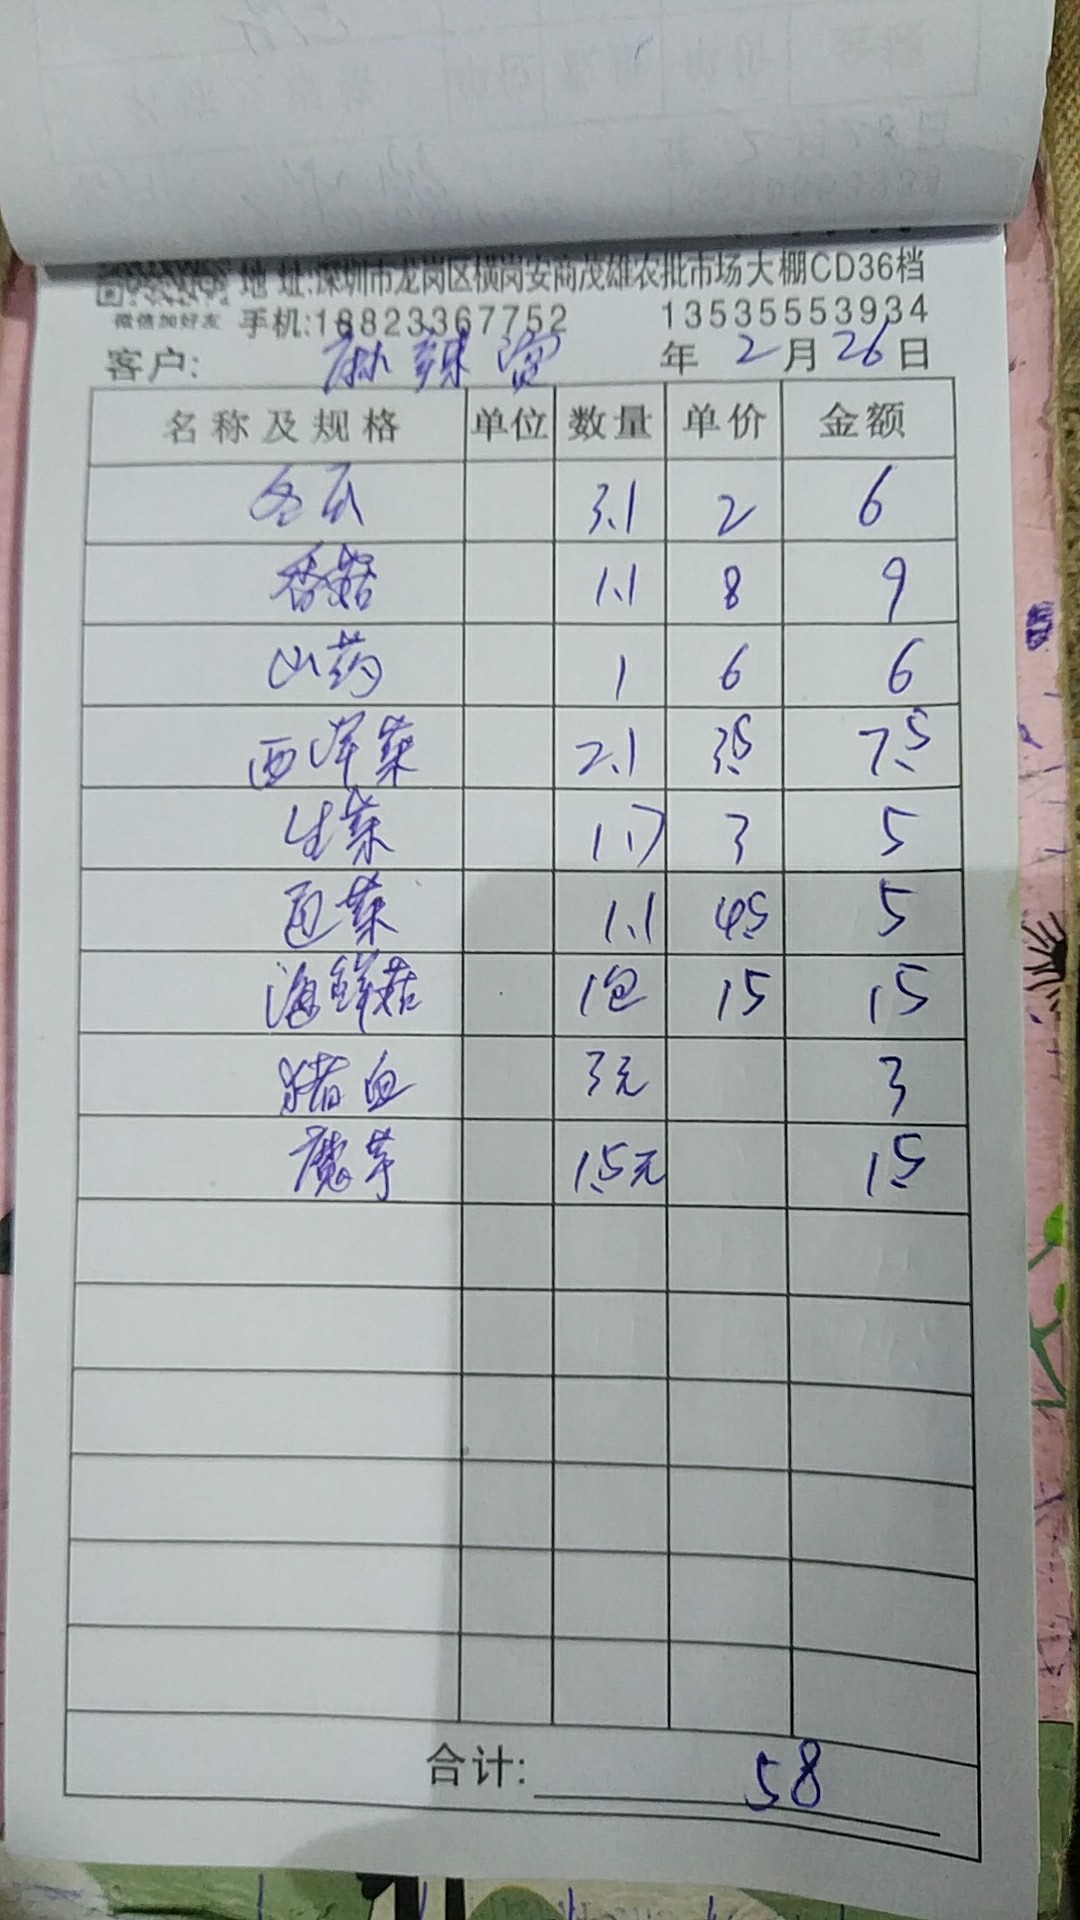 地 址:深圳市龙岗区横岗安商茂雄农批市场大棚CD36档
微信加好友 手机:18823367752 13535553934
客户: 麻辣 年 2月26日
名称及规格 单位 数量 单价 金额
冬瓜 3.1 2 6
香菇 1.1 8 9
山药 1 6 6
西洋菜 2.1 3.5 7.5
生菜 1.7 3 5
包菜 1.1 4.5 5
海鲜菇 1包 15 15
猪血 3元 3
魔芋 1.5元 1.5
合计: 58